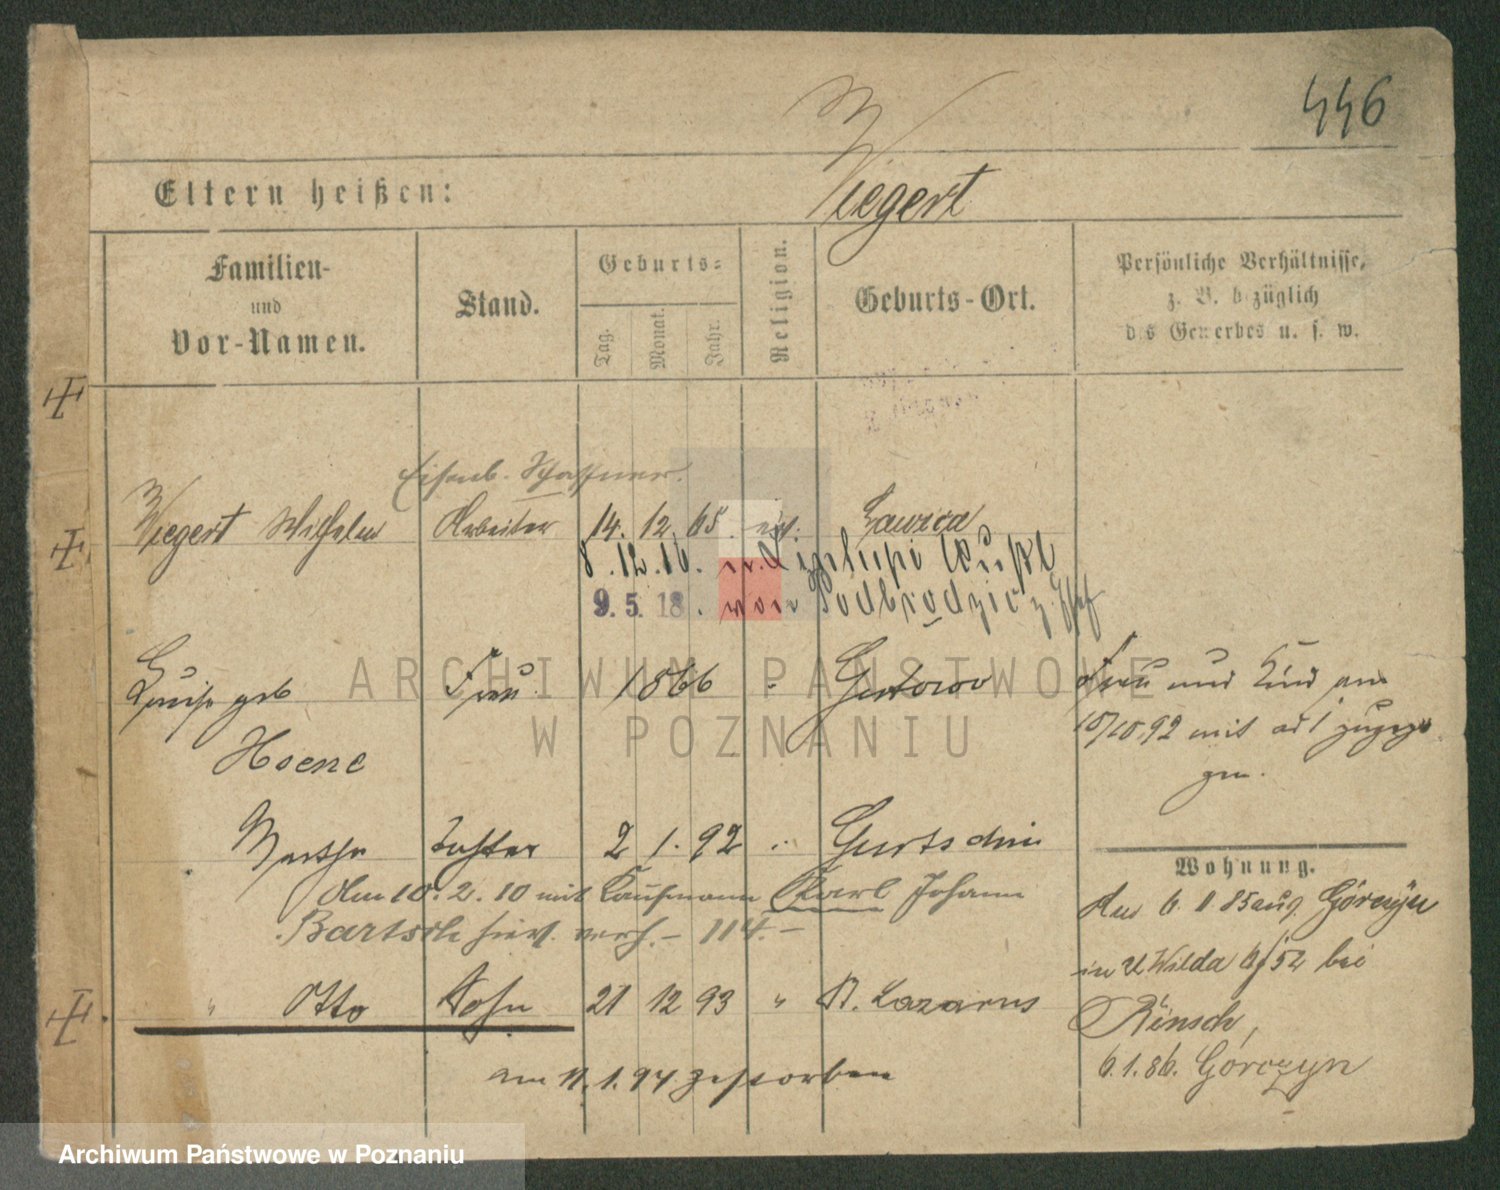 446
Wiegert
Eltern heißen:
Familien-
und
Vor-Namen.
Stand.
Geburts-
Tag.
Monat.
Jahr.
Religion.
Geburts-Ort.
Persönliche Verhältnisse,
z. B. bezüglich
des Gewerbes u. s. w.
Eisenb. Schaffner.
Wiegert Wilhelm Arbeiter 14. 12. 65. ev. Lawica
8.12.16.
9.5.18. von Podbrodzie z.
Luise geb Frau 1866 " Gurtowo
Hoene
Frau und Kind am
10/10.92 mit
Martha Tochter 2 1. 92 " Gurtschin
Am 10.2.10 mit Kaufmann Karl Johann
Bartsch hier verh. – 114. –
" Otto Sohn 21 12 93 " St. Lazarus
am 11.1.94 gestorben
Wohnung.
Aus Górczyn
in U Wilda 6/52 bei
Rinsch,
6.1.86. Górczyn
ARCHIWUM PAŃSTWOWE
W POZNANIU
Archiwum Państwowe w Poznaniu